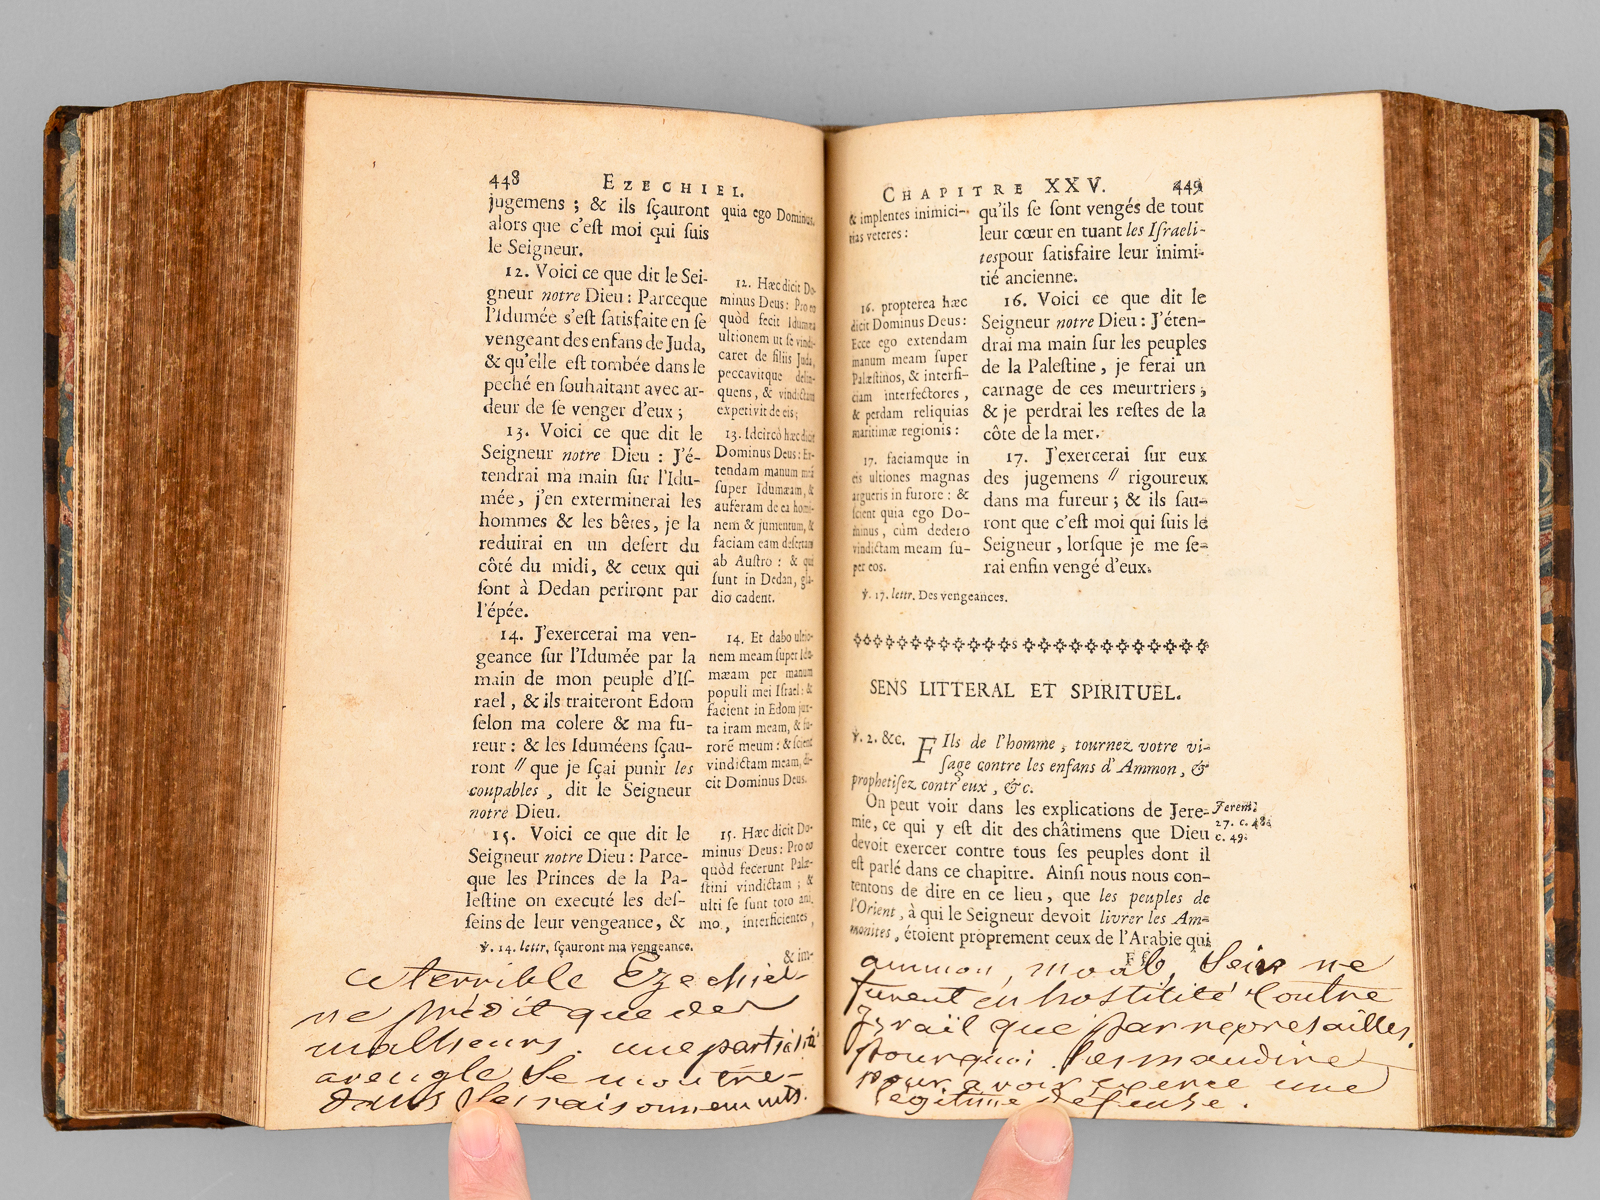 448 EZECHIEL.
jugemens ; & ils ſçauront
alors que c'eſt moi qui ſuis
le Seigneur.
12. Voici ce que dit le Sei-
gneur notre Dieu : Parceque
l'Idumée s'eſt ſatisfaite en ſe
vengeant des enfans de Juda,
& qu'elle eſt tombée dans le
peché en ſouhaitant avec ar-
deur de ſe venger d'eux ;
13. Voici ce que dit le
Seigneur notre Dieu : J'é-
tendrai ma main ſur l'Idu-
mée, j'en exterminerai les
hommes & les bêtes, je la
reduirai en un deſert du
côté du midi, & ceux qui
ſont à Dedan periront par
l'épée.
14. J'exercerai ma ven-
geance ſur l'Idumée par la
main de mon peuple d'Iſ-
rael, & ils traiteront Edom
ſelon ma colere & ma fu-
reur : & les Iduméens ſçau-
ront // que je ſçai punir les
coupables, dit le Seigneur
notre Dieu.
15. Voici ce que dit le
Seigneur notre Dieu : Parce-
que les Princes de la Pa-
leſtine on executé les deſ-
ſeins de leur vengeance, &
quia ego Dominus.
12. Hæc dicit Do-
minus Deus : Pro eo
quòd fecit Idumæa
ultionem ut ſe vindi-
caret de filiis Juda,
peccavitque delin-
quens, & vindictam
expetivit de eis ;
13. Idcircò hæc dicit
Dominus Deus : Ex-
tendam manum meā
ſuper Idumæam, &
auferam de ea homi-
nem & jumentum, &
faciam eam deſertam
ab Auſtro : & qui
ſunt in Dedan, gla-
dio cadent.
14. Et dabo ultio-
nem meam ſuper Idu-
mæam per manum
populi mei Iſrael : &
facient in Edom jux-
ta iram meam, & fu-
rorē meum : & ſcient
vindictam meam, di-
cit Dominus Deus.
15. Hæc dicit Do-
minus Deus : Pro eo
quòd fecerunt Palæ-
ſtini vindictam ; &
ulti ſe ſunt toto ani-
mo, interficientes,
ỳ. 14. lettr. ſçauront ma vengeance.
& im-
ce terrible Ezechiel
ne prédit que des
malheurs. une partialité
aveugle se montre
dans ses raisonnements.
CHAPITRE XXV. 449
& implentes inimici-
tias veteres :
16. propterea hæc
dicit Dominus Deus :
Ecce ego extendam
manum meam ſuper
Palæſtinos, & interfi-
ciam interfectores,
& perdam reliquias
maritimæ regionis :
17. faciamque in
eis ultiones magnas
arguens in furore : &
ſcient quia ego Do-
minus, cùm dedero
vindictam meam ſu-
per eos.
qu'ils ſe ſont vengés de tout
leur cœur en tuant les Iſraeli-
tes pour ſatisfaire leur inimi-
tié ancienne.
16. Voici ce que dit le
Seigneur notre Dieu : J'éten-
drai ma main ſur les peuples
de la Paleſtine, je ferai un
carnage de ces meurtriers ;
& je perdrai les reſtes de la
côte de la mer.
17. J'exercerai ſur eux
des jugemens // rigoureux
dans ma fureur ; & ils ſau-
ront que c'eſt moi qui ſuis le
Seigneur, lorſque je me ſe-
rai enfin vengé d'eux.
ỳ. 17. lettr. Des vengeances.
SENS LITTERAL ET SPIRITUEL.
ỳ. 2. &c. FIls de l'homme, tournez votre vi-
ſage contre les enfans d'Ammon, &
prophetiſez contr'eux, &c.
On peut voir dans les explications de Jere-
mie, ce qui y eſt dit des châtimens que Dieu
devoit exercer contre tous ſes peuples dont il
eſt parlé dans ce chapitre. Ainſi nous nous con-
tentons de dire en ce lieu, que les peuples de
l'Orient, à qui le Seigneur devoit livrer les Am-
monites, étoient proprement ceux de l'Arabie qui
Jerem.
27. c. 48.
c. 49.
ammon, moab, Seir ne
furent en hostilité contre
Israïl que par represailles.
pourquoi les maudire
pour avoir exercé une
légitime défense.